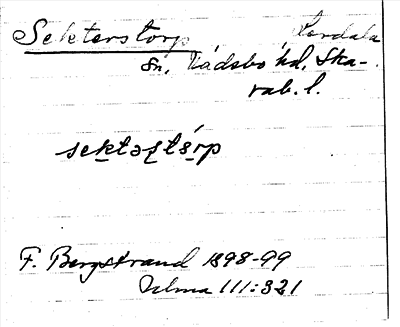 Sekterstorp Lerdala
Sn, Vadsbo hd, Ska-
rab. l.
sektəʂtórp
F. Bergstrand 1898-99
Ulma 111:321